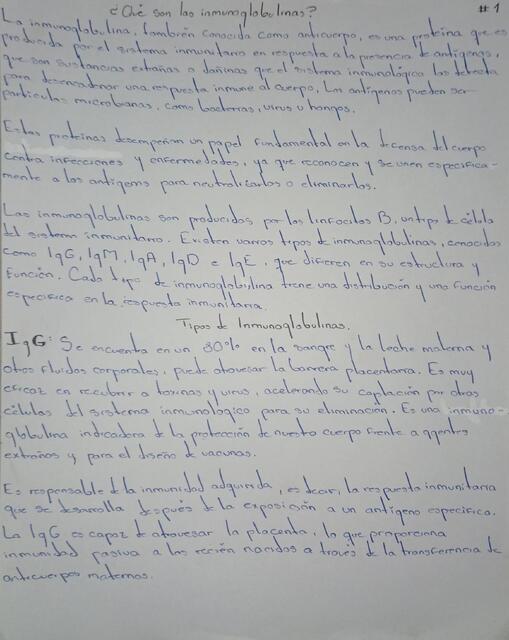 ¿Qué son las inmunoglobulinas? #1
La inmunoglobulina, también conocida como anticuerpo, es una proteína que es
producida por el sistema inmunitario en respuesta a la presencia de antígenos,
que son sustancias extrañas o dañinas que el sistema inmunológico las detecta
para desencadenar una respuesta inmune al cuerpo, Los antígenos pueden ser
partículas microbianas, como bacterias, virus u hongos.
Estas proteínas desempeñan un papel fundamental en la defensa del cuerpo
contra infecciones y enfermedades, ya que reconocen y se unen específica-
mente a los antígenos para neutralizarlos o eliminarlos.
Las inmunoglobulinas son producidas por los linfocitos B, un tipo de célula
del sistema inmunitario. Existen varios tipos de inmunoglobulinas, conocidas
como IgG, IgM, IgA, IgD e IgE, que difieren en su estructura y
función. Cada tipo de inmunoglobulina tiene una distribución y una función
específica en la respuesta inmunitaria.
Tipos de Inmunoglobulinas.
IgG: Se encuentra en un 80% en la sangre y la leche materna y
otros fluidos corporales, puede atravesar la barrera placentaria. Es muy
eficaz en recubrir a toxinas y virus, acelerando su captación por otras
células del sistema inmunológico para su eliminación. Es una inmuno-
globulina indicadora de la protección de nuestro cuerpo frente a agentes
extraños y para el diseño de vacunas.
Es responsable de la inmunidad adquirida, es decir, la respuesta inmunitaria
que se desarrolla después de la exposición a un antígeno específico.
La IgG es capaz de atravesar la placenta, lo que proporciona
inmunidad pasiva a los recién nacidos a través de la transferencia de
anticuerpos maternos.